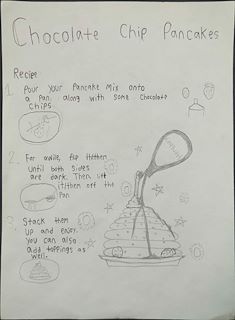 Chocolate Chip Pancakes
Recipe
1. Pour your Pancake Mix onto
a Pan, along with some Chocolate
Chips.
2. For awhile, flip them
until both sides
are dark. Then lift
it/then off the
Pan.
3. Stack them
up and enjoy.
You can also
add toppings as
well.